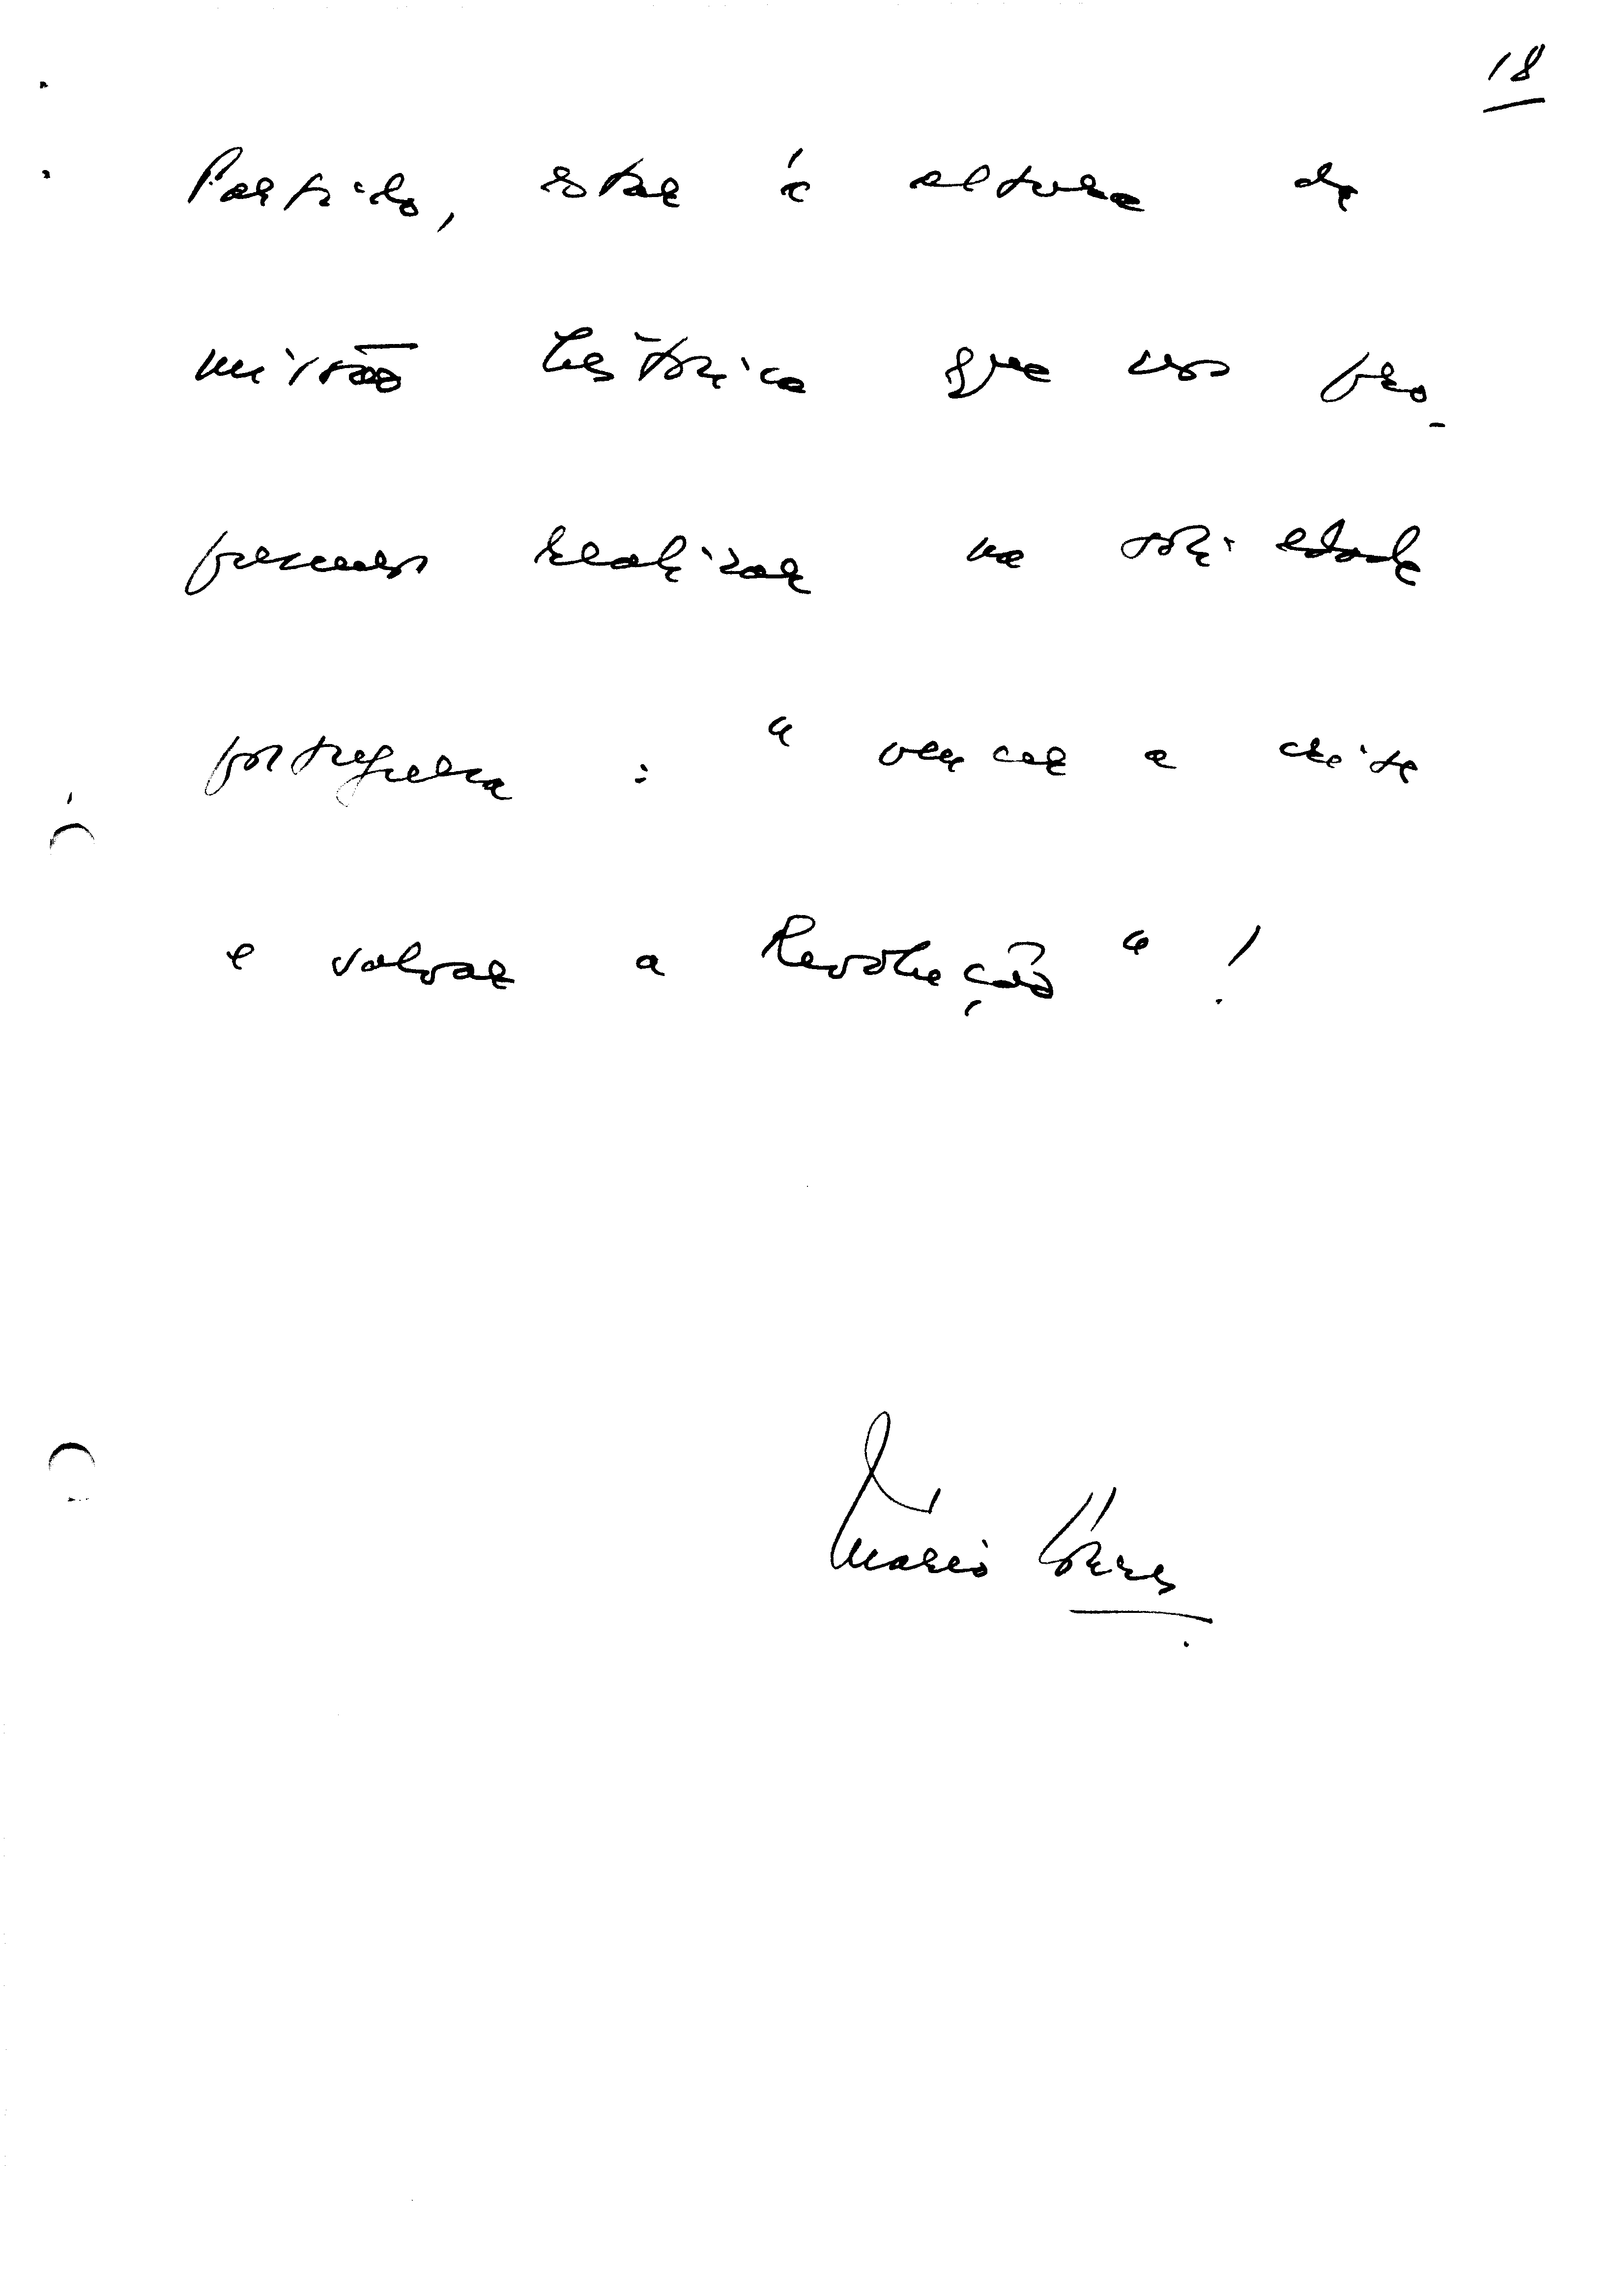 18
Partido, estar à altura da
missão histórica que nos pro-
pusemos realizar na sociedade
portuguesa : "vencer a crise
e salvar a Revolução" !
Mário Soares